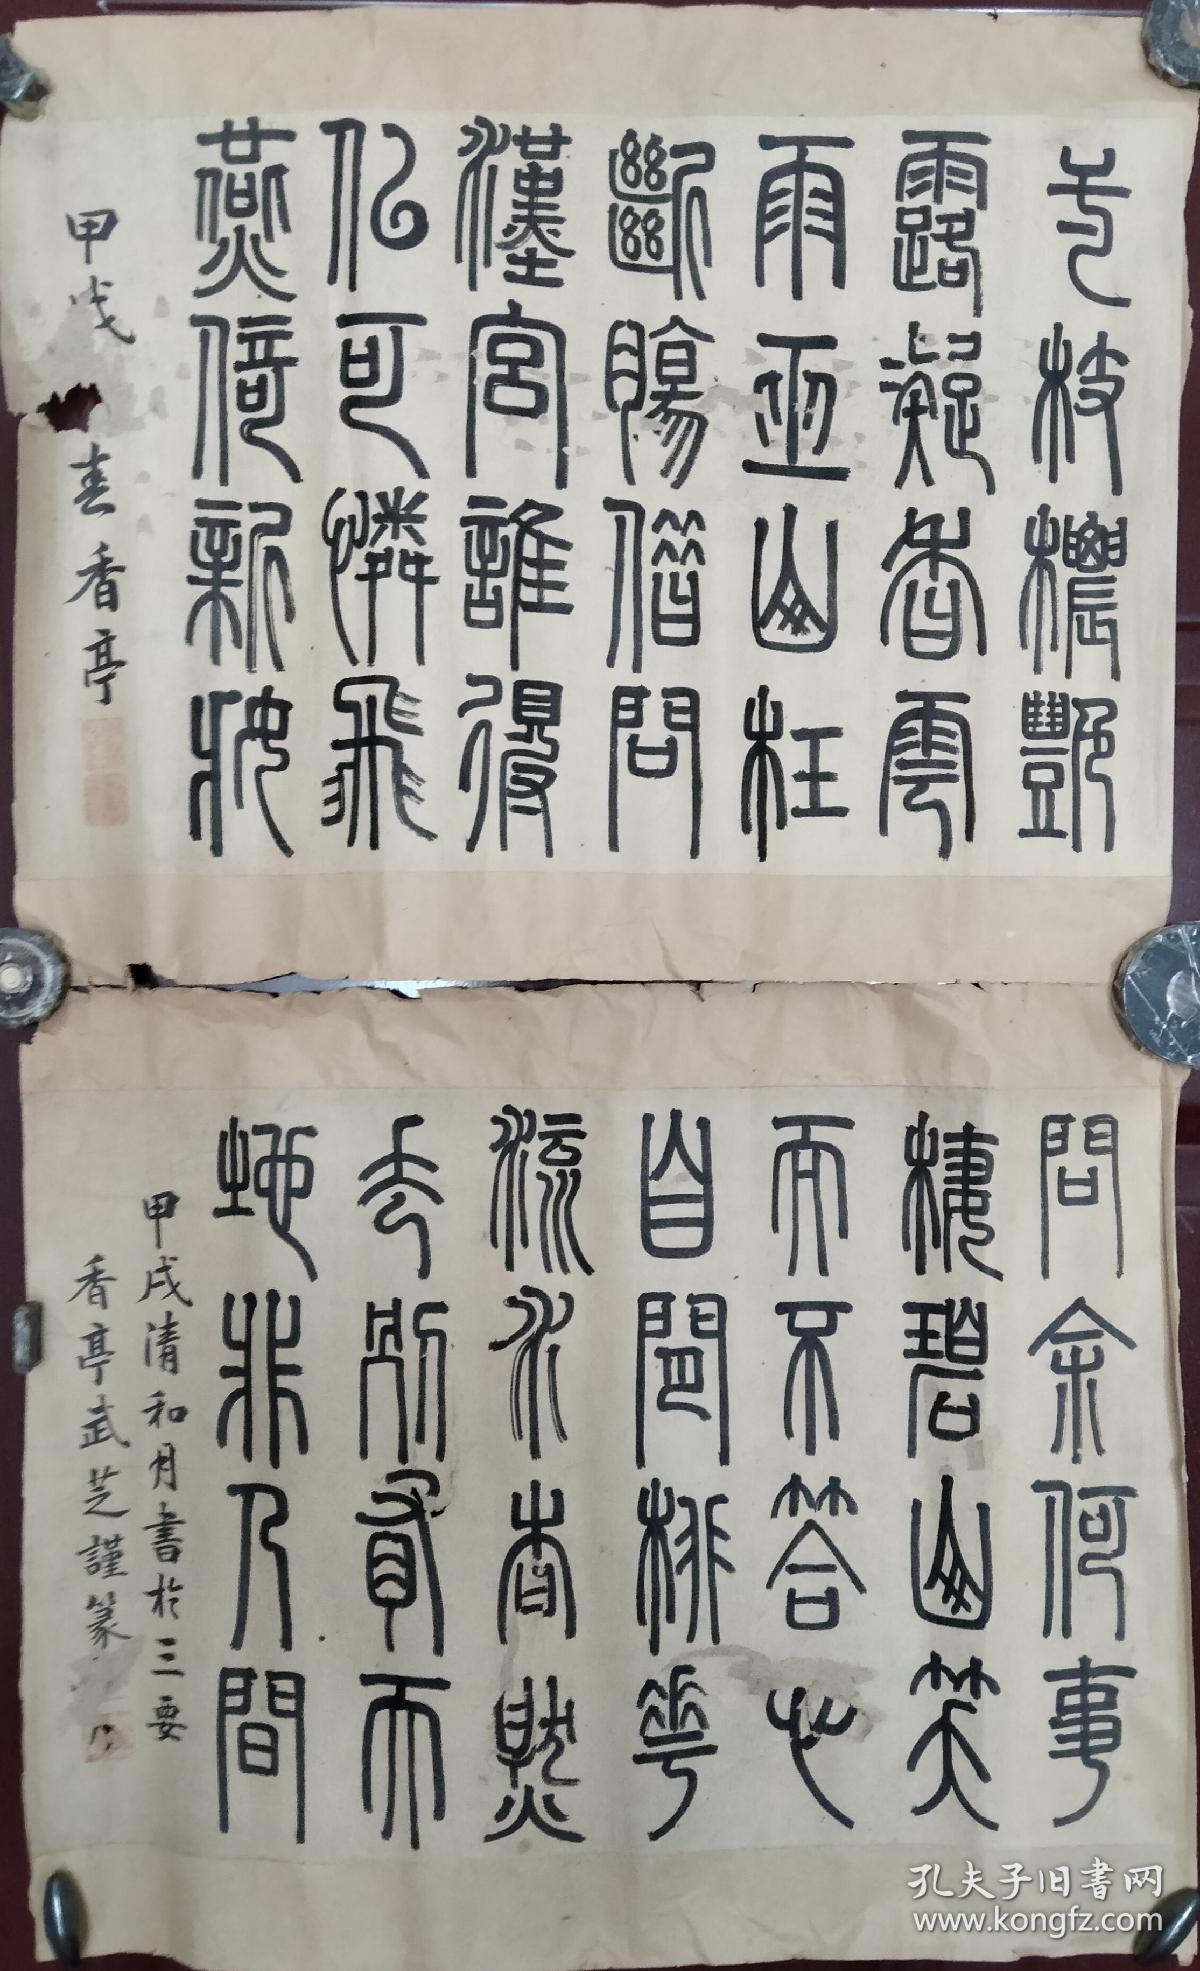 一枝穠艷
露凝香雲
雨巫山枉
斷腸借問
漢宮誰得
似可憐飛
燕倚新妝
甲戌 春香亭
問余何事
棲碧山笑
而不答心
自閒桃花
流水杳然
去別有天
地非人間
甲戌清和月書於三要
香亭武芝謹篆
孔夫子旧书网
www.kongfz.com